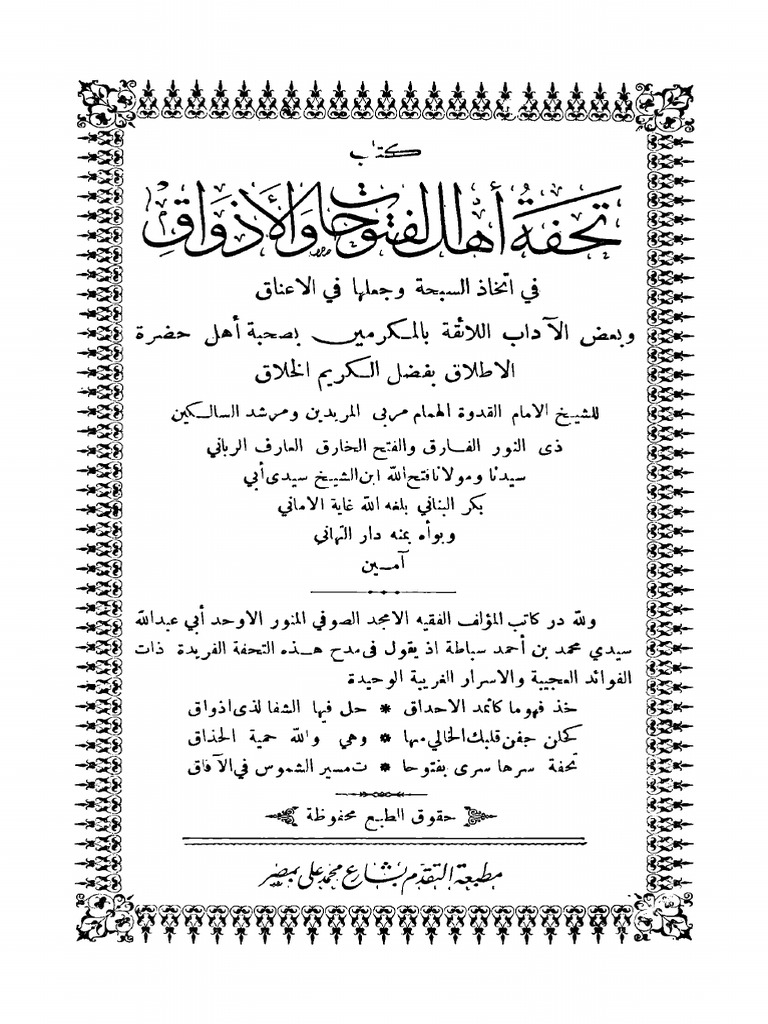 كتاب
تحفة أهل الفتوحات والأذواق
في اتخاذ السبحة وجعلها في الاعناق
وبعض الآداب اللائقة بالمكرمين بصحبة أهل حضرة
الاطلاق بفضل الكريم الخلاق
للشيخ الامام القدوة الهمام مربى المريدين ومرشد السالكين
ذى النور الفارق والفتح الخارق العارف الرباني
سيدنا ومولانا فتح الله ابن الشيخ سيدى أبي
بكر البناني بلغه الله غاية الاماني
وبوأه بمنه دار التهاني
آمين
ولله در كاتب المؤلف الفقيه الامجد الصوفي المنور الاوحد أبي عبدالله
سيدي محمد بن أحمد سباطة اذ يقول فى مدح هذه التحفة الفريدة ذات
الفوائد العجيبة والاسرار الغريبة الوحيدة
خذ فهوما كائمد الاحداق * حل فيها الشفا لذى اذواق
كحلن جفن قلبك الخالي منها * وهي والله حمية الحذاق
تحفة سرها سرى بفتوحا * ت مسير الشموس في الآفاق
حقوق الطبع محفوظة
مطبعة التقدم بشارع محمد على بمصر